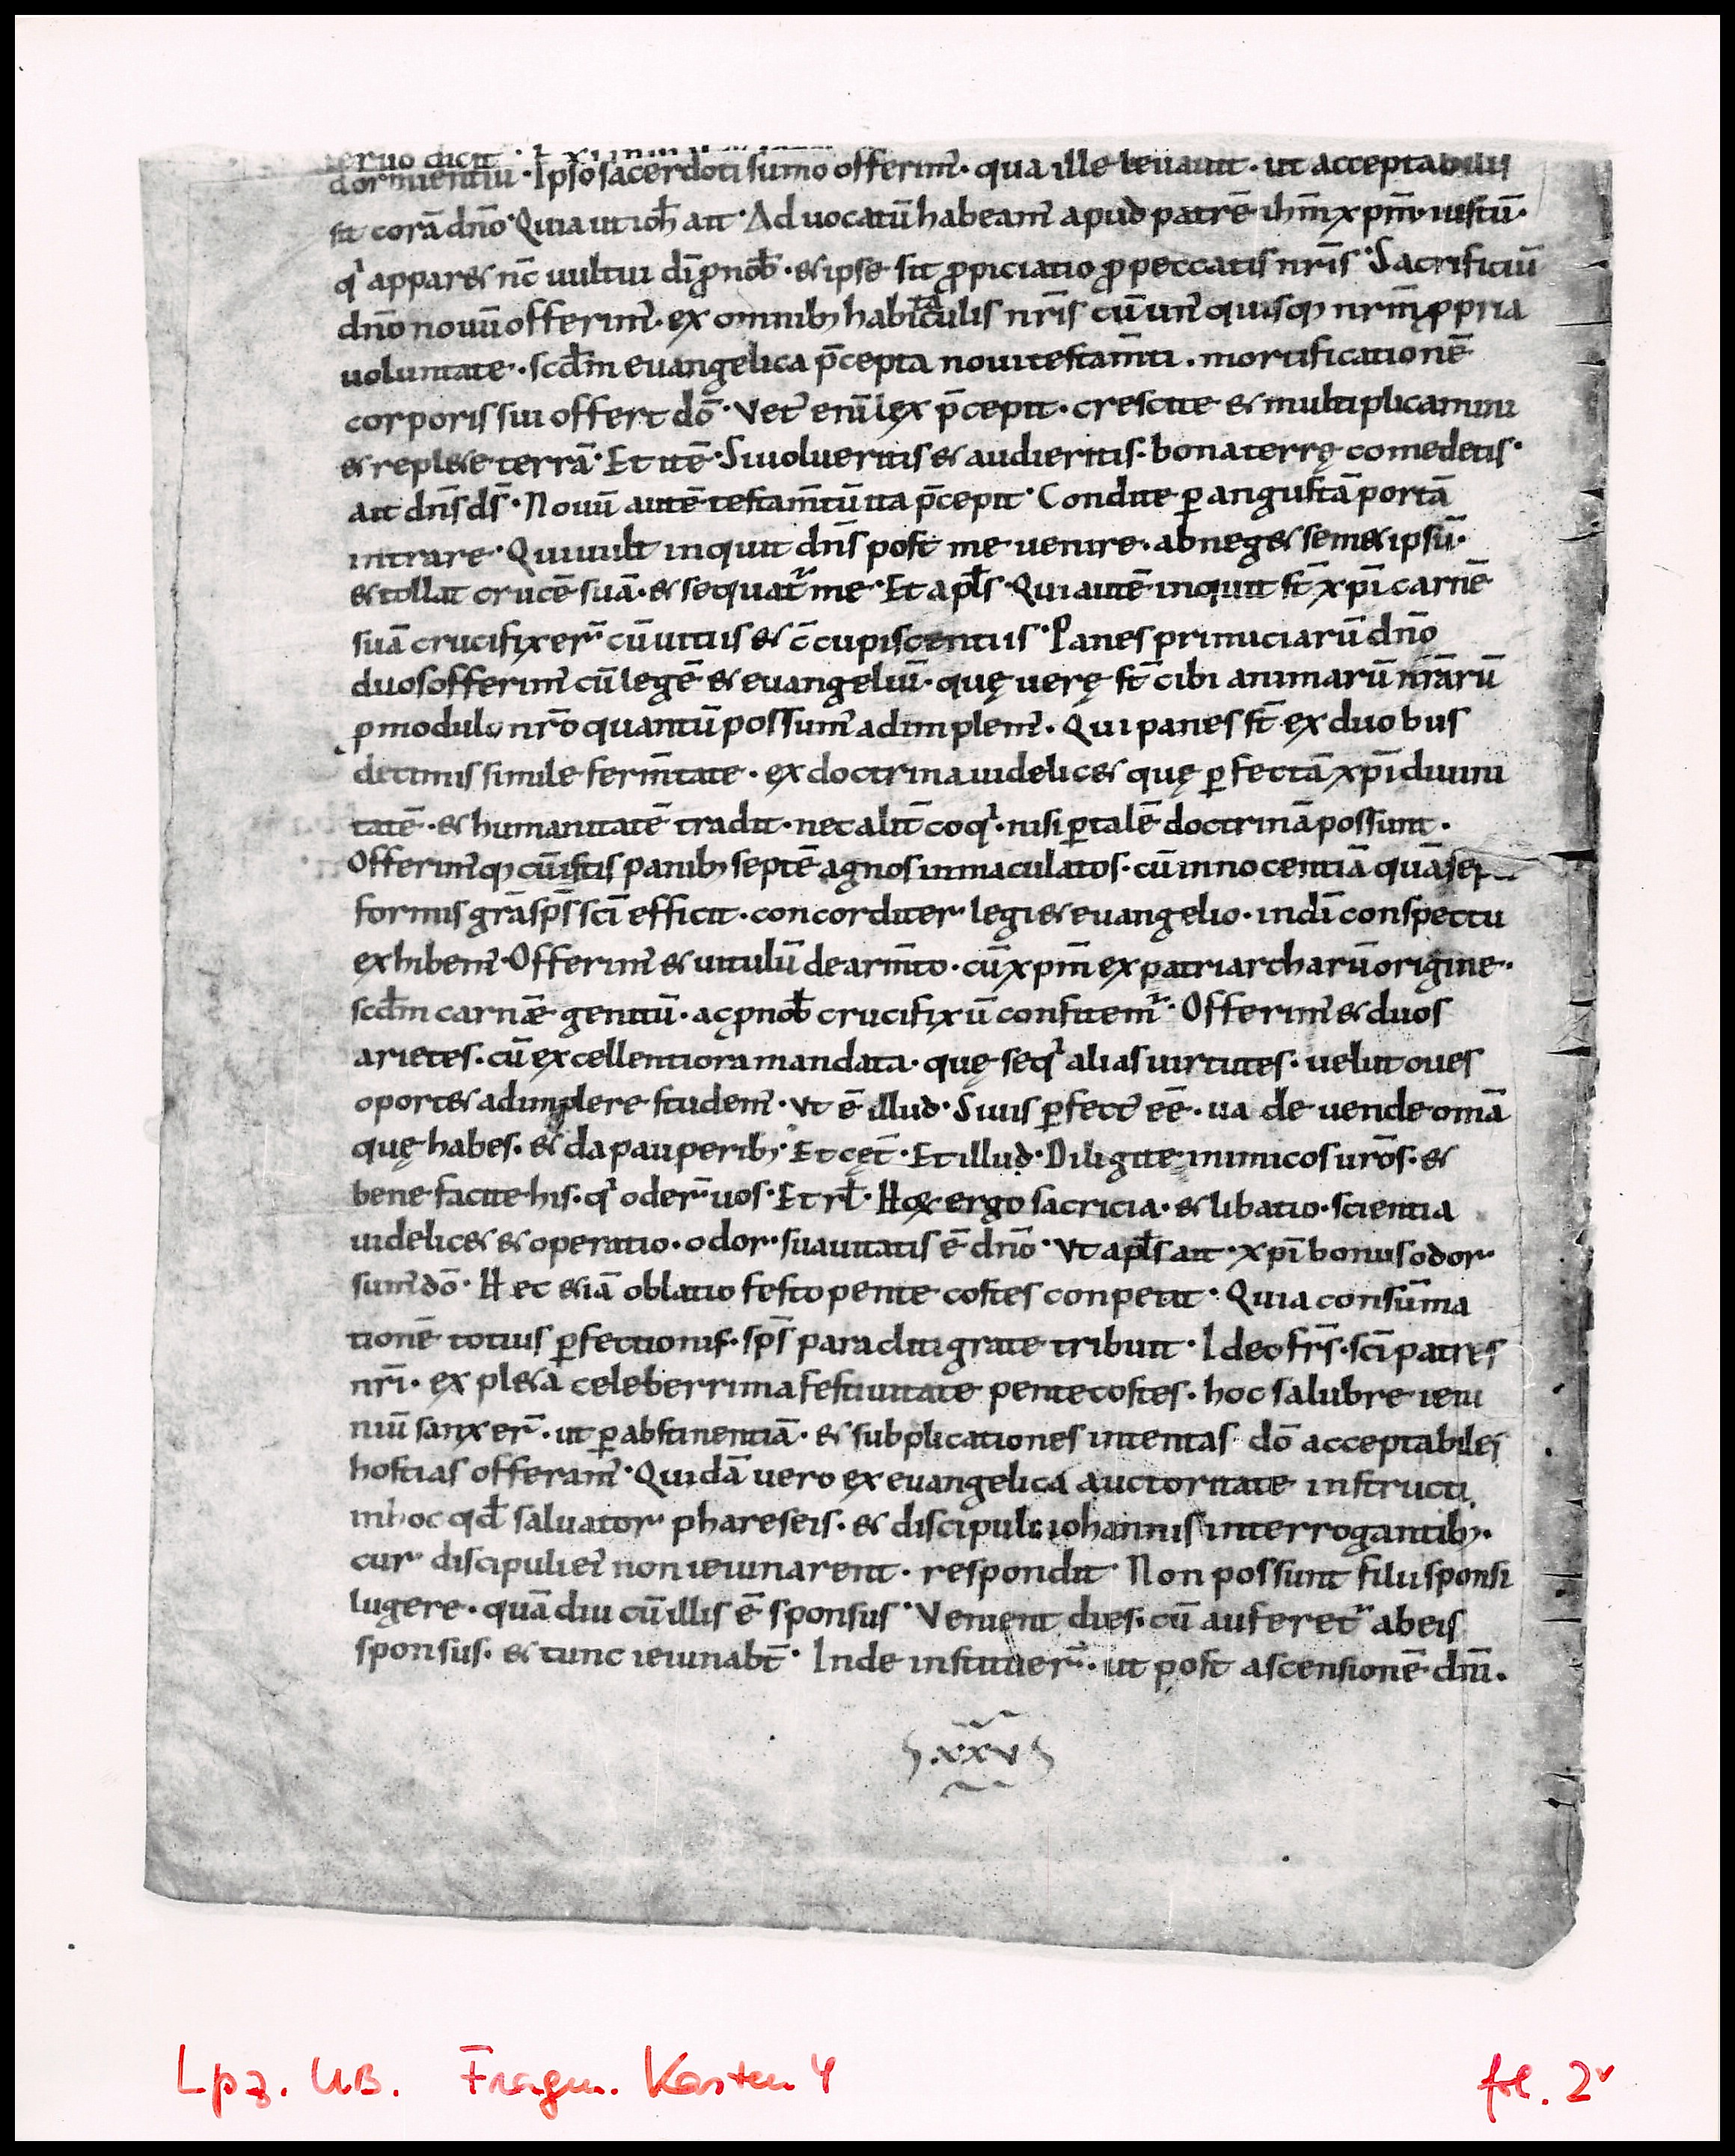 dormientiū · Ipso sacerdoti sūmo offerim᷒ · qua ille leuauit · ut acceptabilis
sit corā dn̄o · Quia ut ioh̄ ait · Aduocatū habeam᷒ apud patrē ih̄m xp̄m · iustū ·
qͥ apparet nc̄ uultui dī ꝓ nob̄ · & ipse sit ꝓpiciatio ꝓ peccatis nr̄is · Sacrificiū
dn̄o nouū offerim᷒ · ex omnib; habitaculis nr̄is cū un᷒quisq; nr̄m ꝓpria
uoluntate · scd̄m euangelica p̄cepta noui testam̄ti · mortificationē
corporis sui offert dō · Vet᷒ eni᷒ lex p̄cepit · crescite & multiplicamini
& replete terrā · Et itē · Si uolueritis & audieritis · bona terrę comedetis ·
ait dn̄s ds̄ · Nouū autē testam̄tū ita p̄cepit · Condite ꝑ angustā portā
intrare · Qui uult inquit dn̄s post me uenire · abneget semetipsū ·
& tollat crucē suā · & sequat᷑ me · Et apl̄s · Qui autē inquit st̄ xp̄i carnē
suā crucifixer᷑ cū uitiis & c̄cupiscentiis · Panes primiciarū dn̄o
duos offerim᷒ cū legē & euangeliū · quę uerę st̄ cibi animarū nr̄arū
ꝓ modulo nr̄o quantū possum᷒ adimplem᷒ · Qui panes st̄ ex duobus
decimis simile ferm̄tate · ex doctrina uidelicet quę ꝑfectā xp̄i diuini
tatē · & humanitatē tradit · nec alit̄ coqͥ · nisi ꝑ talē doctrinā possunt ·
Offerim᷒q; cū istis panib; septē agnos inmaculatos · cū innocentiā quā
formis gr̄a sp̄s sc̄i efficit · concorditer legi & euangelio · in dī conspectu
exhibem᷒ · Offerim᷒ & uitulū de arm̄to · cū xp̄m ex patriarcharū origine ·
scd̄m carnē genitū · ac ꝓ nob̄ crucifixū confitem᷑ · Offerim᷒ & duos
arietes · cū excellentiora mandata · quę seqͥ alias uirtutes · uelut oues
oportet adimplere studem᷒ · Vt ē illud · Si uis ꝑfect᷒ eē · uade uende om̄ia
quę habes · & da pauperib; · Et cęt̄ · Et illud · Diligite inimicos ur̄os · &
benefacite his · qͥ oder᷑ uos · Et rl̄ · Hęc ergo sacricia · & libatio · scientia
uidelicet & operatio · odor suauitatis ē dn̄o · Vt apl̄s ait · xp̄i bonus odor
sum᷒ dō · Hec etiā oblatio festo pentecostes conpetit · Quia consūma
tionē totius ꝑfectionis · sp̄s paracliti grate tribuit · Ideo fr̄s · sc̄i patres
nr̄i · expleta celeberrima festiuitate pentecostes · hoc salubre ieiu
niū sanxer᷑ · ut ꝑ abstinentiā · & subplicationes intentas dō acceptabiles
hostias offeram᷒ · Quidā uero ex euangelica auctoritate instructi
in hoc qd̄ saluator phareseis · & discipulis iohannis interrogantib; ·
cur discipuli ei᷒ non ieiunarent · respondit · Non possunt filii sponsi
lugere · quādiu cū illis ē sponsus · Venient dies · cū auferet᷑ ab eis
sponsus · & tunc ieiunabt̄ · Inde instituer᷑ · ut post ascensionē dn̄i ·
.xxv
Lpz. UB. Fragm. Kasten 4
fol. 2v